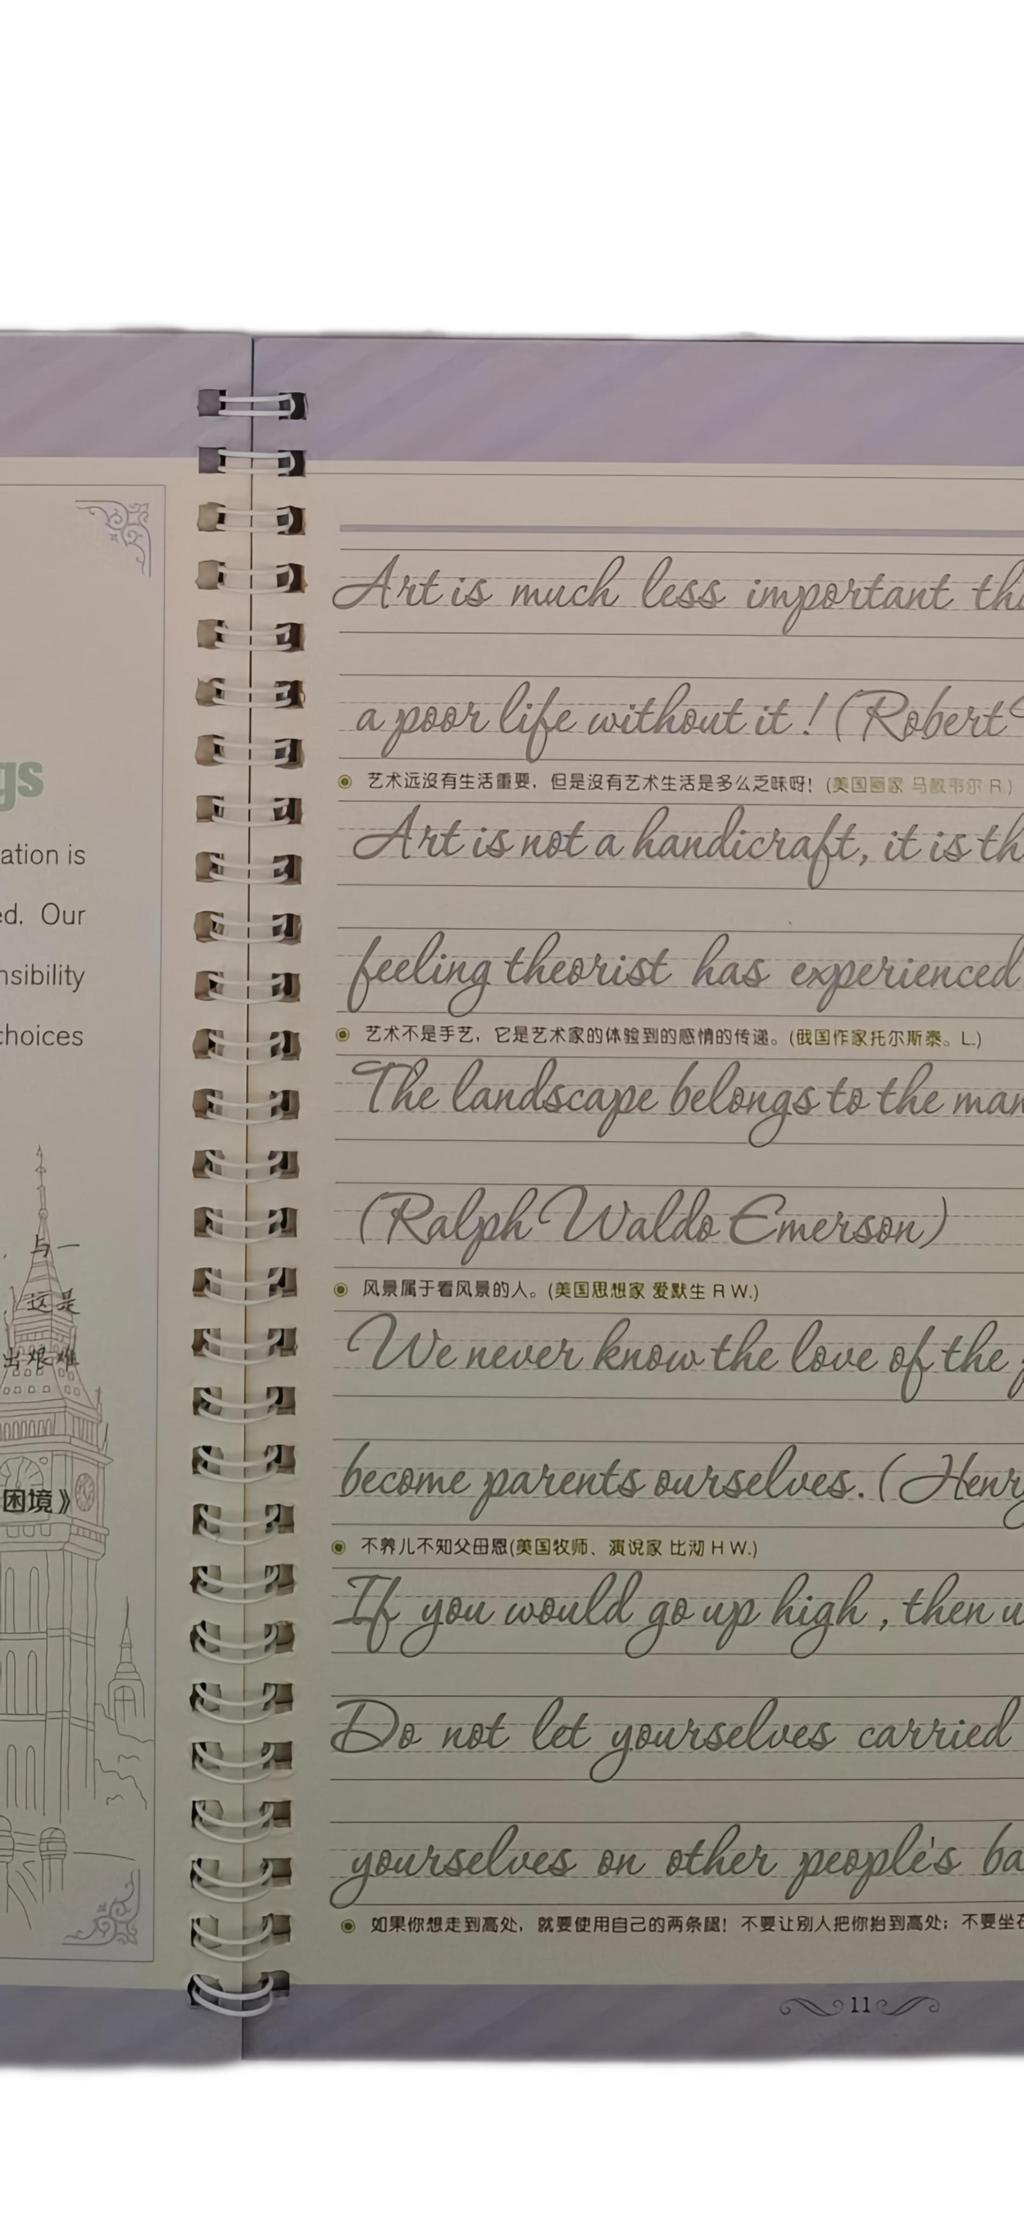 gs
ation is
ed. Our
nsibility
choices
与一
这是
出艰难
困境》
Art is much less important
a poor life without it! (Robert
艺术远没有生活重要，但是没有艺术生活是多么乏味呀！(美国画家 马瑟韦尔 R.)
Art is not a handicraft, it is
feeling theorist has experienced
艺术不是手艺，它是艺术家的体验到的感情的传递。(俄国作家托尔斯泰。L.)
The landscape belongs to the
(Ralph Waldo Emerson)
风景属于看风景的人。(美国思想家 爱默生 R W.)
We never know the love of the
become parents ourselves. (Henry
不养儿不知父母恩(美国牧师、演说家 比沏 H W.)
If you would go up high, then
Do not let yourselves carried
yourselves on other people's
如果你想走到高处，就要使用自己的两条腿！不要让别人把你抬到高处；不要坐在
11